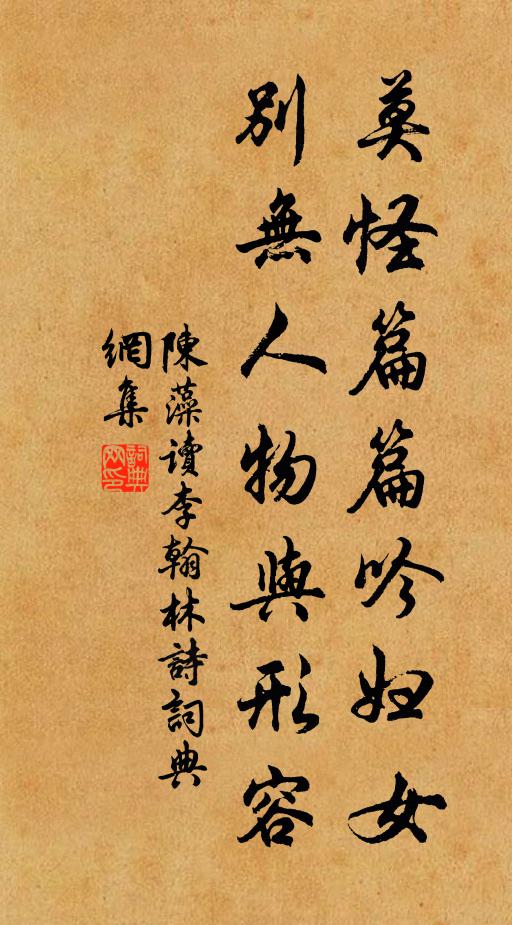 莫怪篇篇吟妇女
別無人物與形容
陳藻讀李翰林詩詞典
網集
詞典
网印